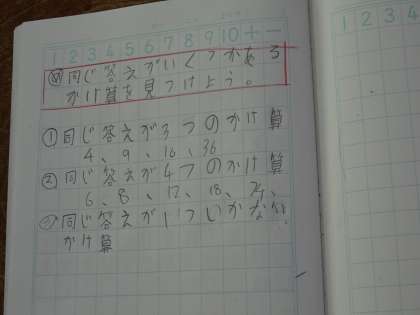 1 2 3 4 5 6 7 8 9 10 + −
同じ答えがいくつかある
かけ算を見つけよう。
① 同じ答えが3つのかけ算
4、9、16、36
② 同じ答えが4つのかけ算
6、8、12、18、24、
同じ答えが
かけ算
1 2 3 4